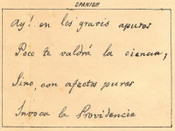 SPANISH
Ay! en los graves apuros
Poco te valdrá la ciencia,
Sino, con afectos puros
Invoca la Providencia